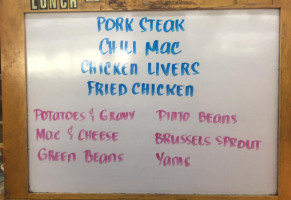 LUNCH
PORK STEAK
CHILI MAC
CHICKEN LIVERS
FRIED CHICKEN
POTATOES & GRAVY
MAC & CHEESE
GREEN BEANS
PINTO BEANS
BRUSSELS SPROUT
YAMS